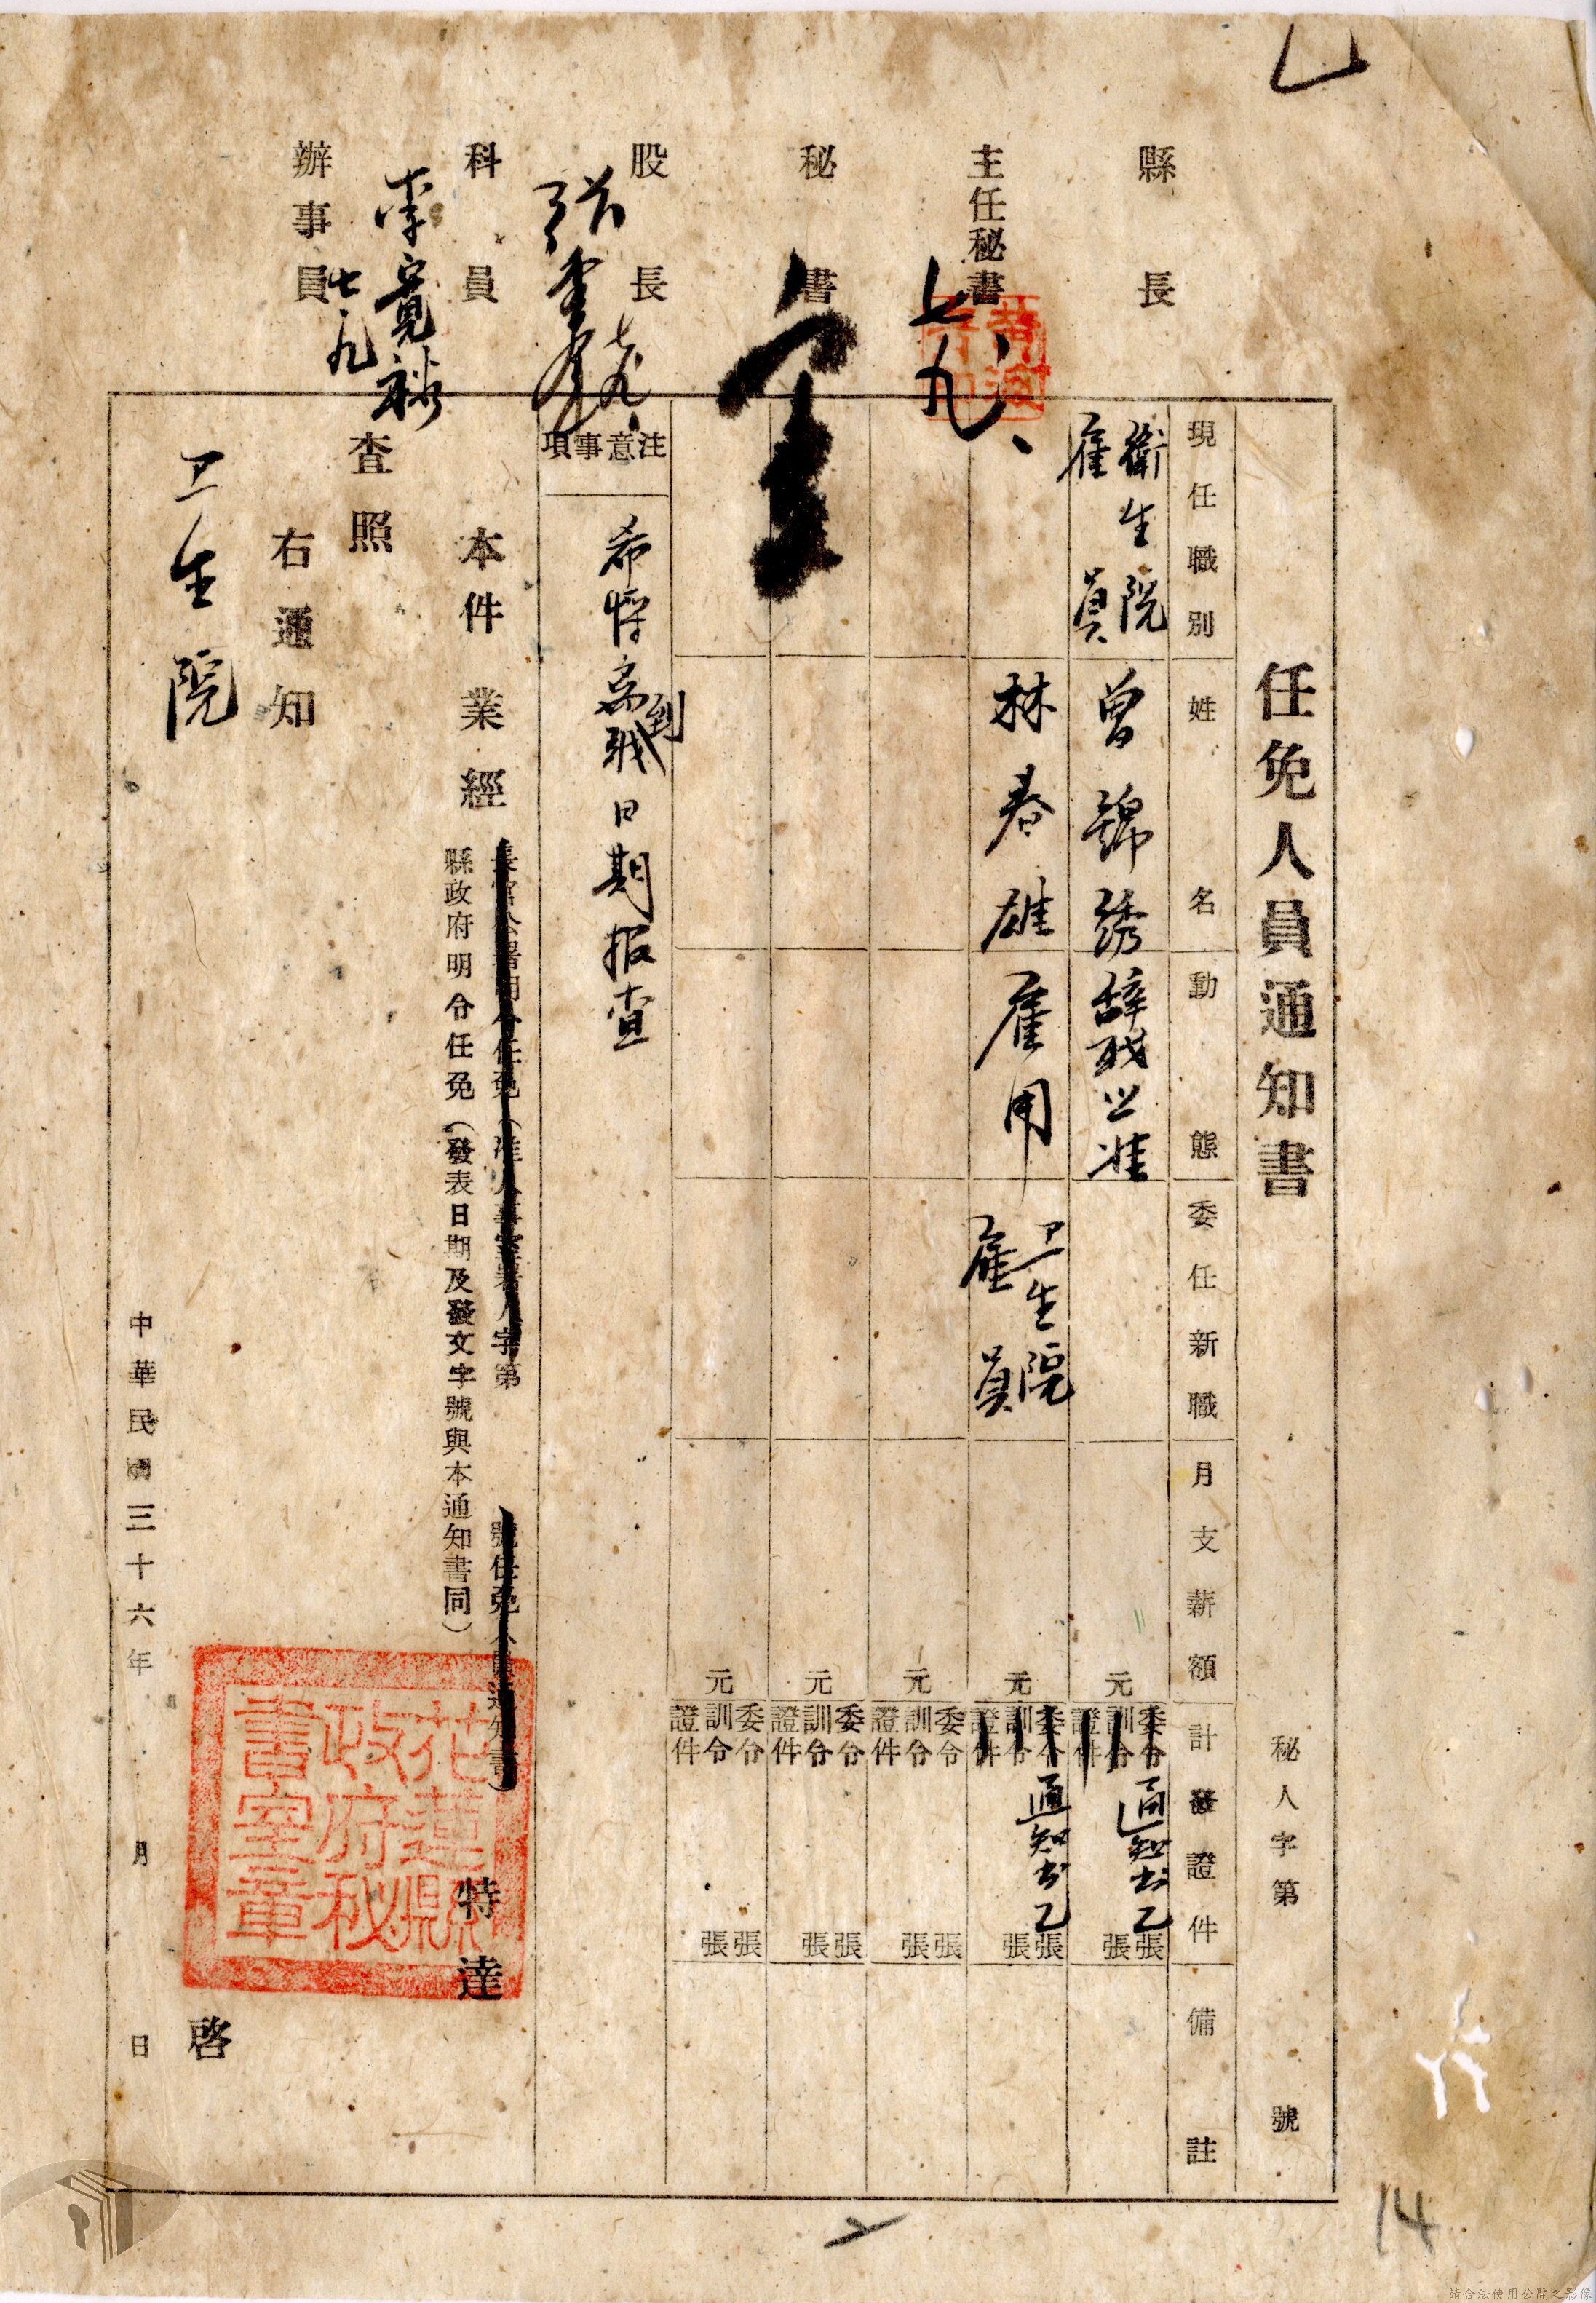 縣長
主任秘書
七、九、
秘書
股長
科員
李寬裕
七.九
辦事員
任免人員通知書
秘人字第 號
現任職別 姓名 動態 委任新職 月支薪額 計發證件 備註
衛生院雇員 曾錦綉 辭職照准 元 委令 訓令 證件 通知書乙張 張
林春雄 雇用 卫生院雇員 元 委令 訓令 證件 通知書乙張 張
元 委令 訓令 證件 張 張
元 委令 訓令 證件 張 張
元 委令 訓令 證件 張 張
注意事項
希將到離職日期報查
本件業經
長官公署明令任免(准人事室署人字第 號任免人員通知書)
縣政府明令任免(發表日期及發文字號與本通知書同)
特達
查照
右通知
卫生院
啓
花蓮縣政府秘書室章
中華民國三十六年 月 日
14
請合法使用公開之影像